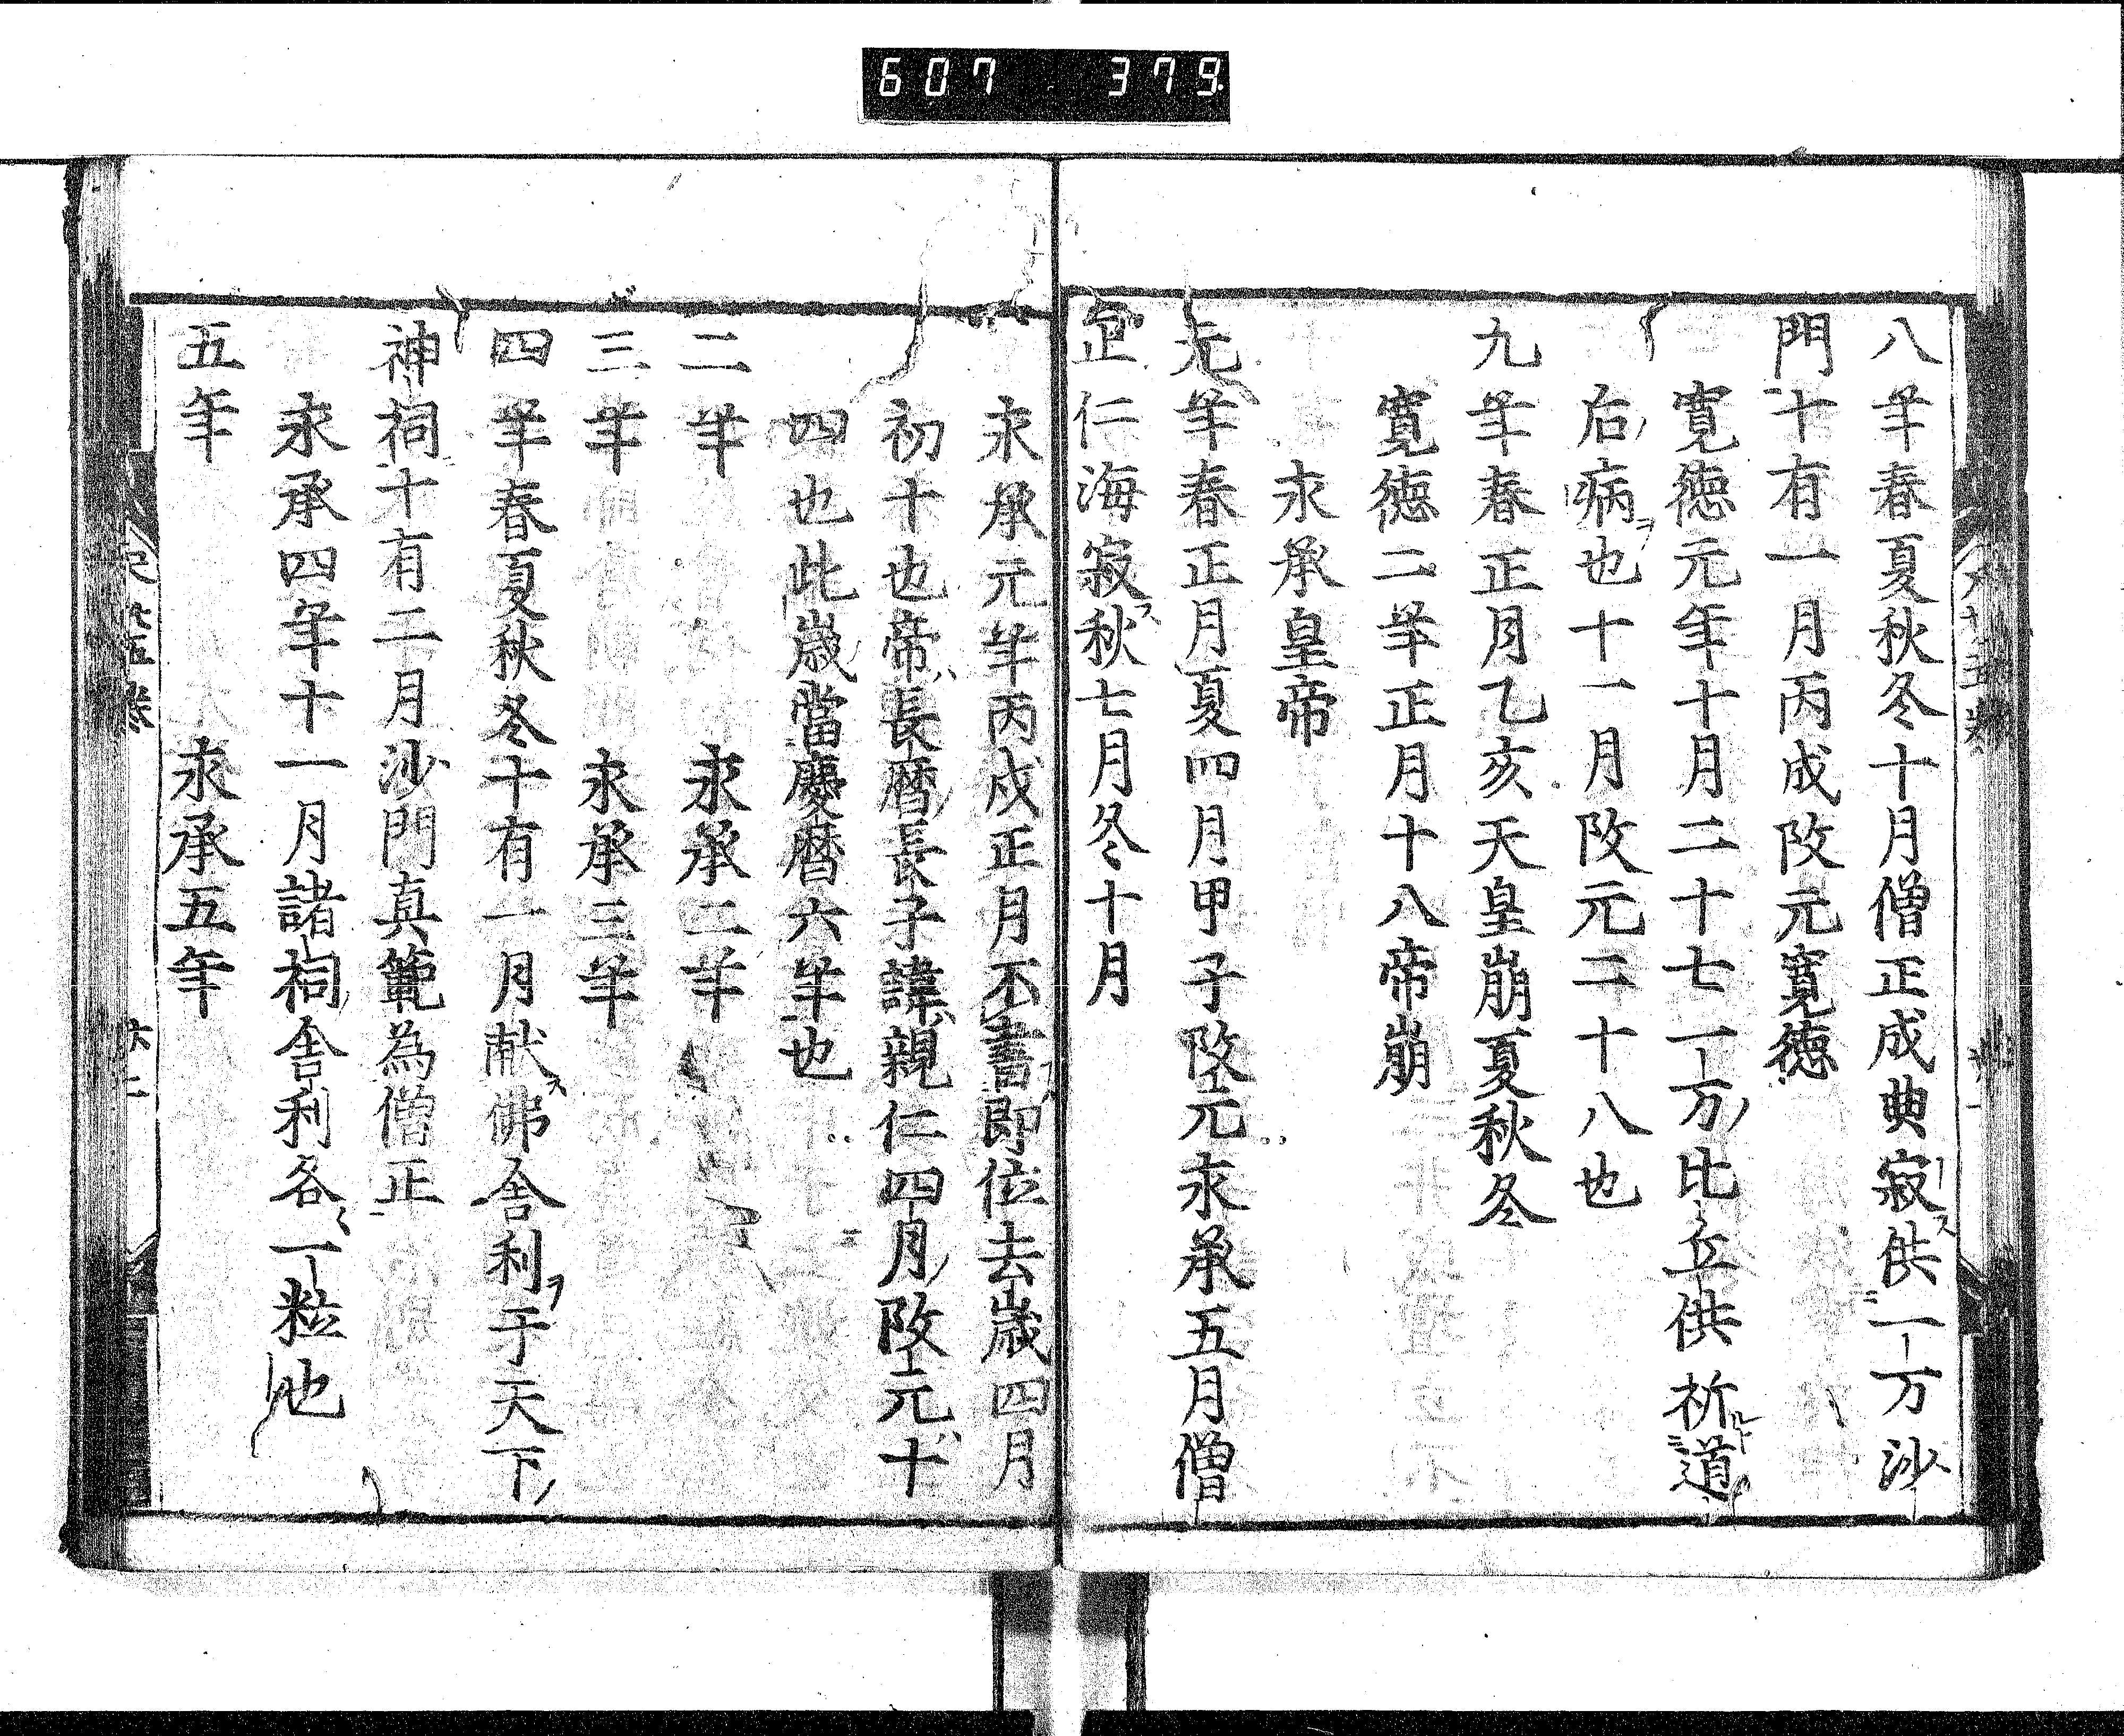 607 379
八年春夏秋冬十月僧正成典寂供一万沙
門十有一月丙戌改元寛徳
寛徳元年十月二十七一万比丘供祈道
后病也十一月改元二十八也
九年春正月乙亥天皇崩夏秋冬
寛徳二年正月十八帝崩
永承皇帝
元年春正月夏四月甲子改元永承五月僧
正仁海寂秋七月冬十月
永承元年丙戌正月不書即位去歳四月
初十也帝長暦長子諱親仁四月改元十
四也此歳當慶暦六年也
二年 永承二年
三年 永承三年
四年春夏秋冬十有一月献佛舎利于天下
神祠十有二月沙門真範為僧正
永承四年十一月諸祠舎利各一粒也
五年 永承五年